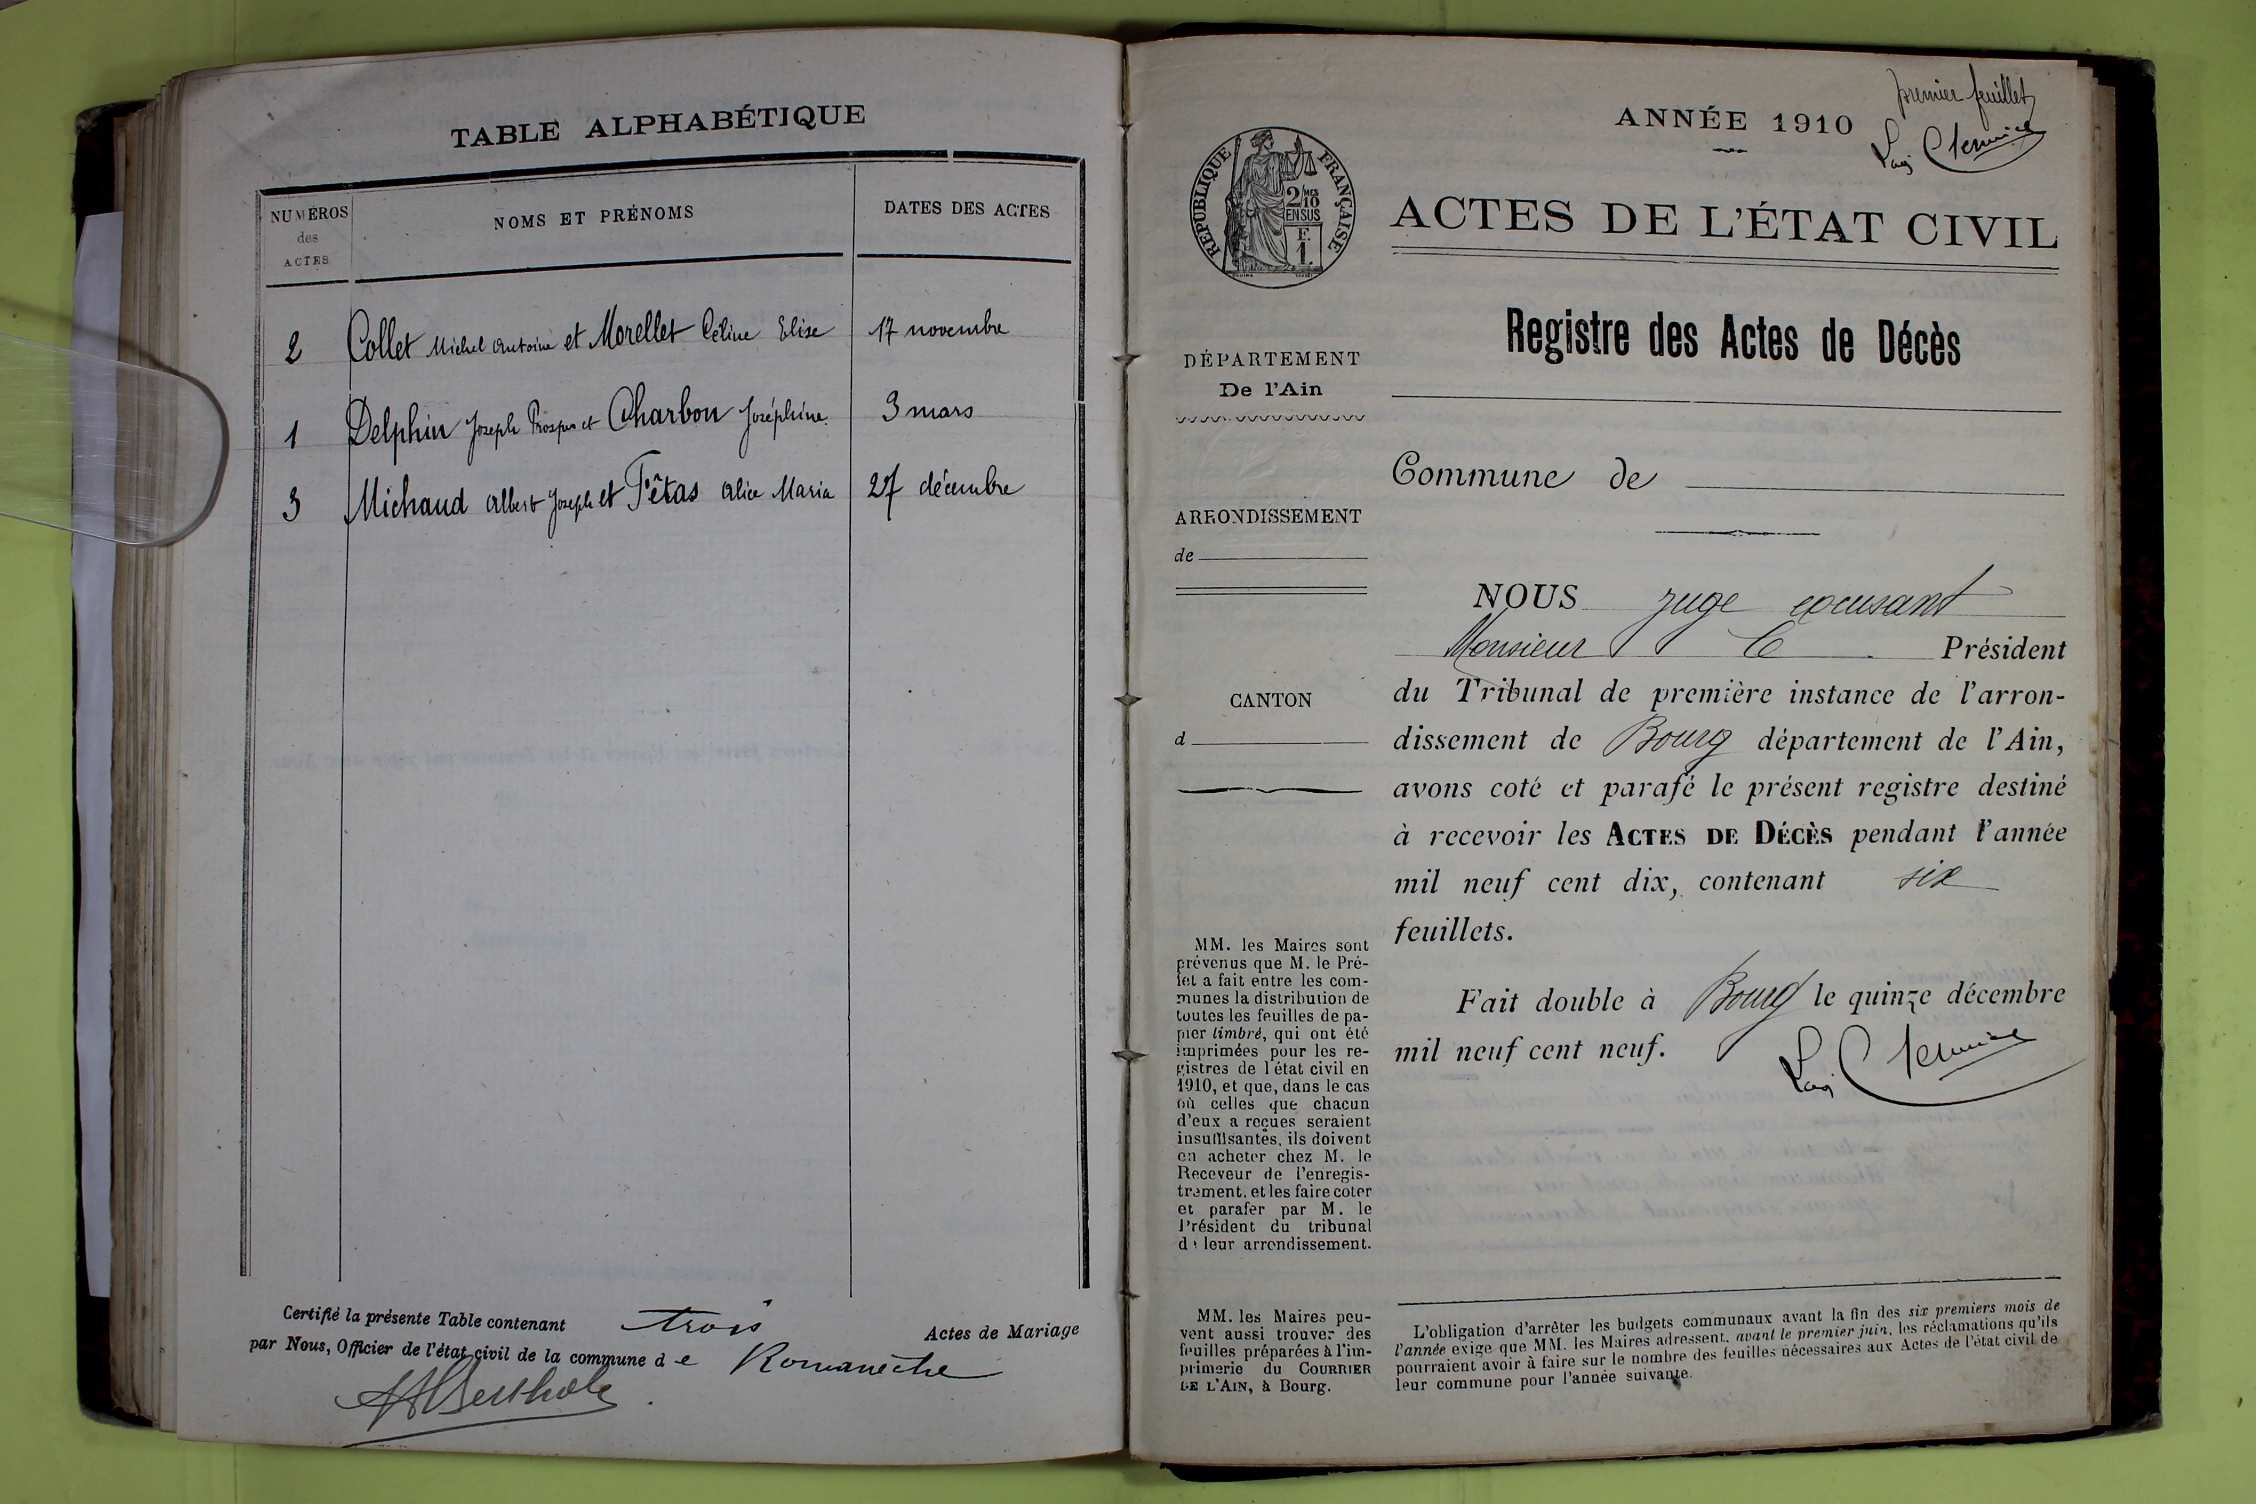 TABLE ALPHABÉTIQUE
NUMÉROS
des
ACTES
NOMS ET PRÉNOMS
DATES DES ACTES
2 Collet Michel Antoine et Morellet Céline Elise 17 novembre
1 Delphin Joseph Prosper et Charbon Joséphine. 3 mars
3 Michaud Albert Joseph et Têtas Alice Maria 27 décembre
Certifié la présente Table contenant trois Actes de Mariage
par Nous, Officier de l'état civil de la commune de Romanèche
premier feuillet
ANNÉE 1910
RÉPUBLIQUE FRANÇAISE
2/10 MES
EN SUS
F.
1.
ACTES DE L'ÉTAT CIVIL
Registre des Actes de Décès
DÉPARTEMENT
De l'Ain
Commune de
ARRONDISSEMENT
de
CANTON
d
NOUS juge excusant
Monsieur le Président
du Tribunal de première instance de l'arron-
dissement de Bourg département de l'Ain,
avons coté et parafé le présent registre destiné
à recevoir les ACTES DE DÉCÈS pendant l'année
mil neuf cent dix, contenant six
feuillets.
Fait double à Bourg le quinze décembre
mil neuf cent neuf.
MM. les Maires sont
prévenus que M. le Pré-
fet a fait entre les com-
munes la distribution de
toutes les feuilles de pa-
pier timbré, qui ont été
imprimées pour les re-
gistres de l'état civil en
1910, et que, dans le cas
où celles que chacun
d'eux a reçues seraient
insuffisantes, ils doivent
en acheter chez M. le
Receveur de l'enregis-
trement, et les faire coter
et parafer par M. le
Président du tribunal
de leur arrondissement.
MM. les Maires peu-
vent aussi trouver des
feuilles préparées à l'im-
primerie du COURRIER
DE L'AIN, à Bourg.
L'obligation d'arrêter les budgets communaux avant la fin des six premiers mois de
l'année exige que MM. les Maires adressent, avant le premier juin, les réclamations qu'ils
pourraient avoir à faire sur le nombre des feuilles nécessaires aux Actes de l'état civil de
leur commune pour l'année suivante.